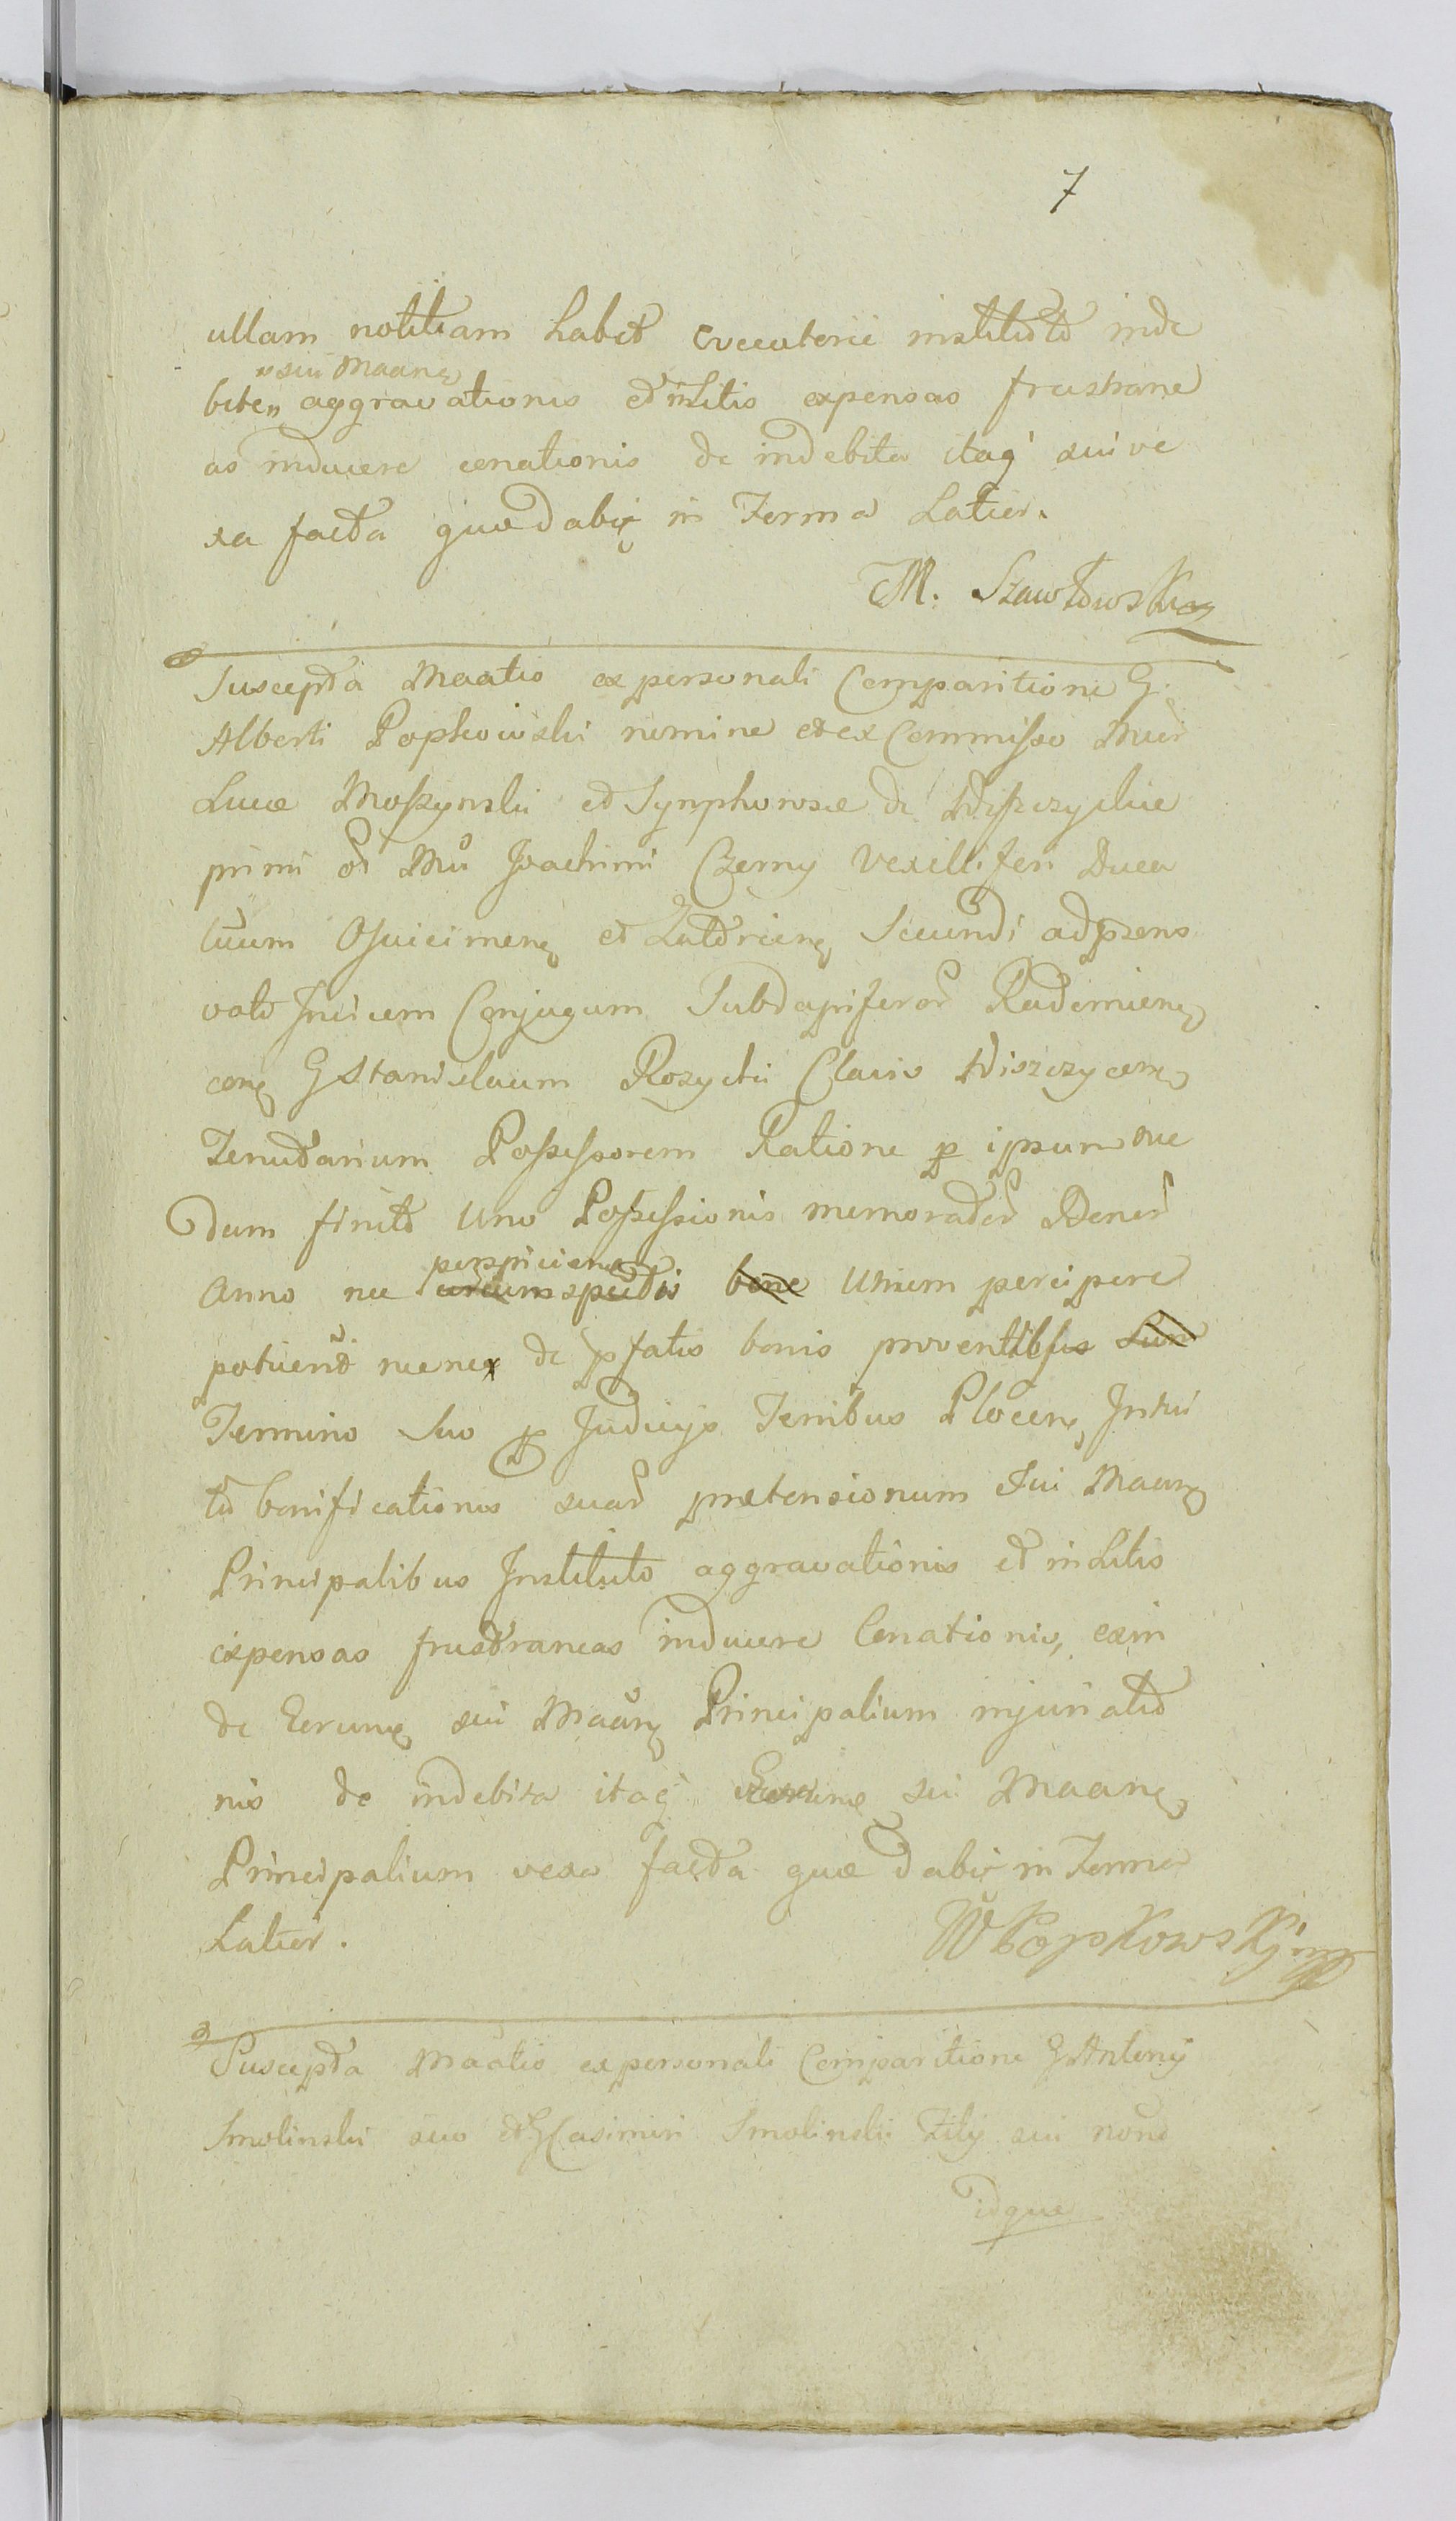 7
ullam notitiam habet evocatorie instituto inde
sui Maane
bite aggravationis et in litis expensas frustrane
as inducere conationis de indebita itaq sui ve
xa facta quae dabit in Forma Latior.
M. Szawłowski
Suscepta Maatio ex personali Comparitione G.
Alberti Popkowski nomine et ex Commisso Mcor
Lucae Moszynski et Symphorosae de Wiszczyckie
primi or Mci Joachimi Czerny Vexilliferi Duca
tuum Osviecimen et Zatorien Secundi ad praens
voto Invicem Conjugum Subdapiferor Radomien
con G Stanislaum Rozycki Clavis Wiszczycen
Tenutarium Possessorem Ratione p ipsum ne
dum finito Uno Possessionis memorator Bonor
Anno nec
perspiciens
circumspectis bone Unum percipere
potuend nec nex de pfatis bonis proventibus sun
Termino Suo p Judicys Terribus Plocen Intui
tu bonificationis suar praetensionum Sui Maan
Principalibus Instituto aggravationis et in litis
expensas frustraneas inducere Conationis, exin
de Eorum sui Maan Principalium injuriatio
nis de indebita itaq Eorum sui Maan
Principalium vexa facta quae dabit in Forma
Latior.
W Popkowski mp
Suscepta Maatio ex personali Comparitione G Antony
Smolinski suo et G Casimiri Smolinski Fily sui nono
idque